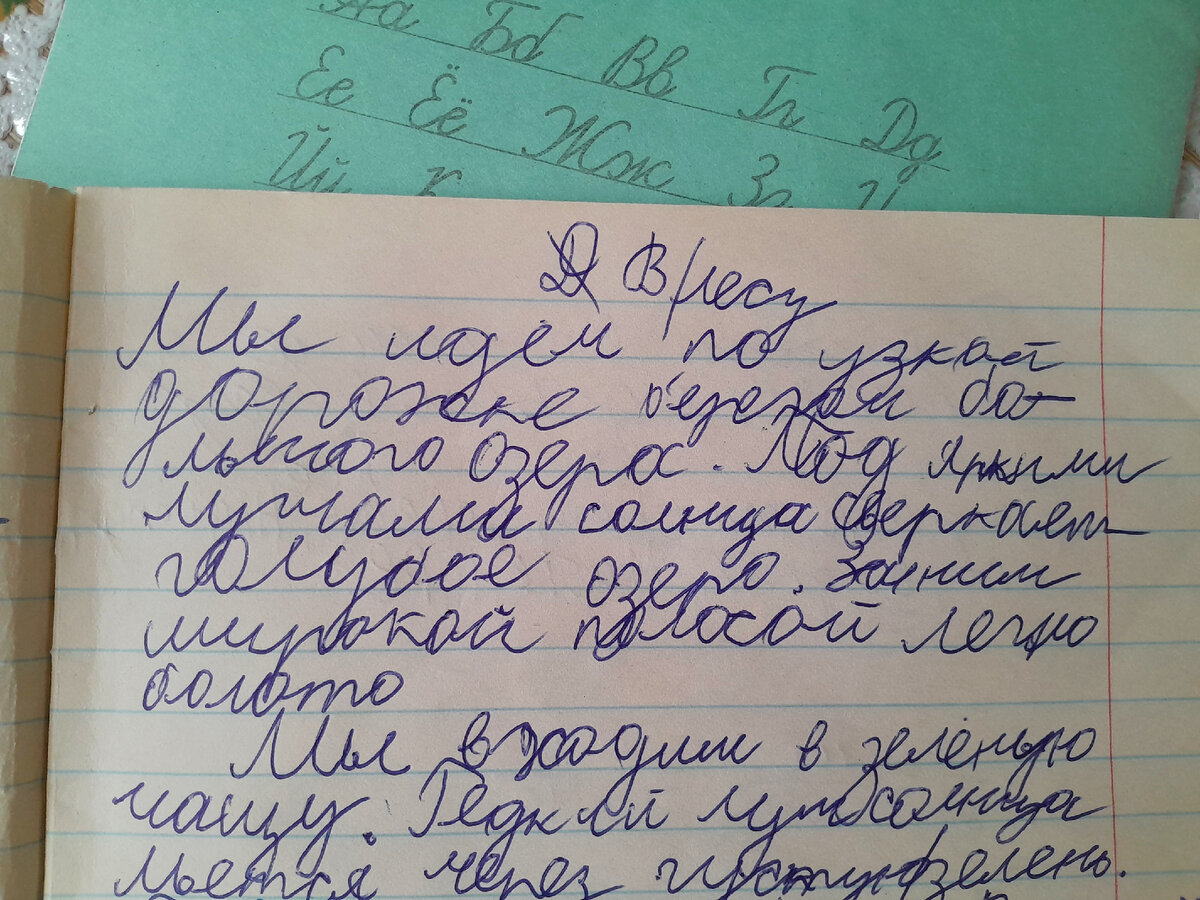 Аа Бб Вв Гг Дд
Ее Ёё Жж Зз И
Йй К
В лесу
Мы идем по узкай
дорожке берегом ба-
льшого озера. Под яркими
лучами солнца сверкает
голубое озеро. Заним
широкой полосой легло
болото
Мы входим в зеленую
чащу. Редкий луч солнца
льется через густую зелень.